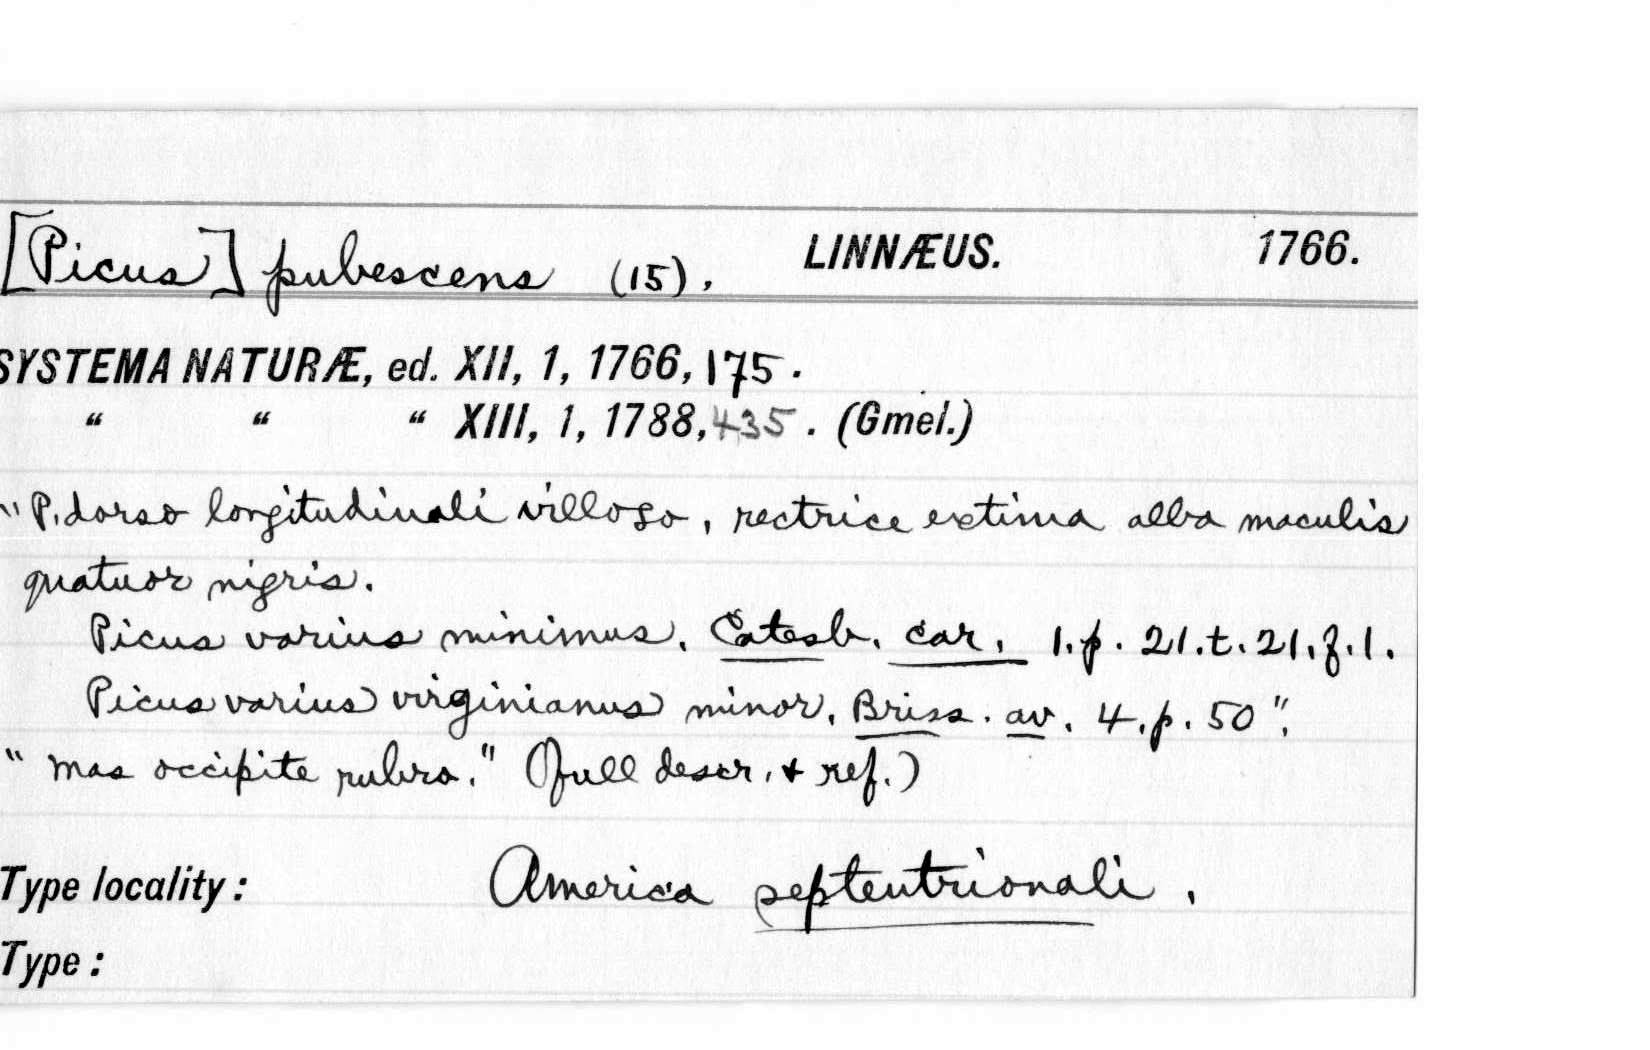 [Picus] pubescens (15). LINNÆUS. 1766.
SYSTEMA NATURÆ, ed. XII, 1, 1766, 175.
" " " XIII, 1, 1788, 435. (Gmel.)
"P. dorso longitudinali villoso, rectrice extima alba maculis
quatuor nigris.
Picus varius minimus. Catesb. car. 1.p. 21.t.21.f.1.
Picus varius virginianus minor. Briss. av. 4.p. 50".
"mas occipite rubro." (full descr. & ref.)
Type locality: America septentrionali.
Type: